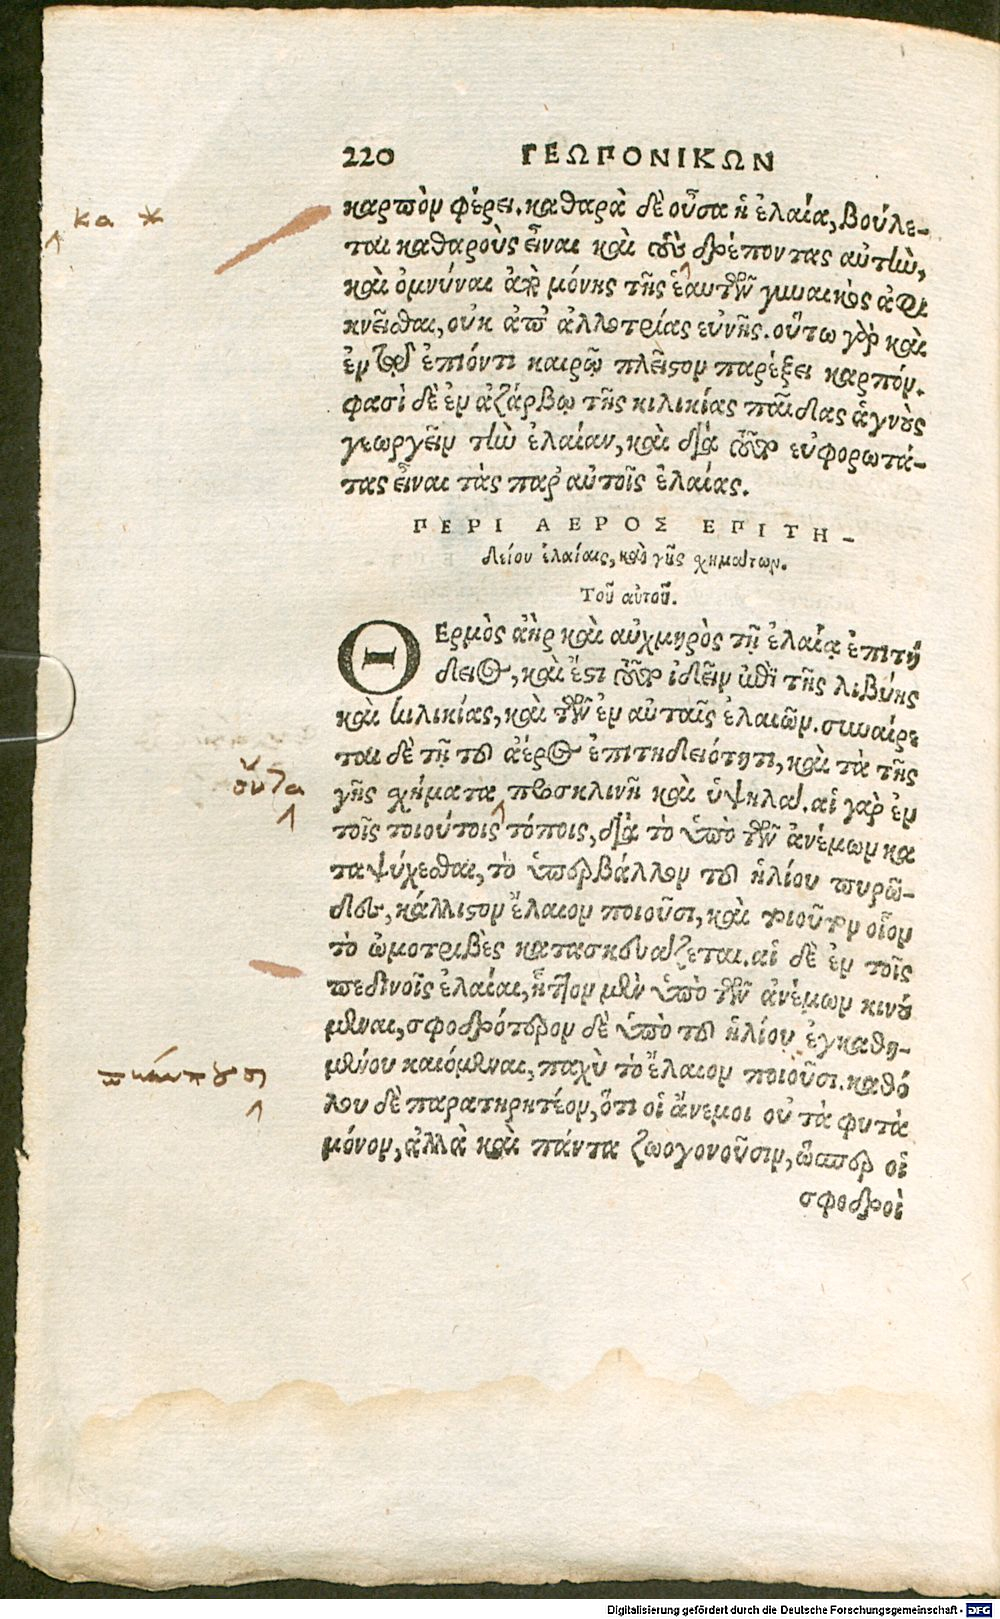 220 ΓΕΩΠΟΝΙΚΩΝ
καρπὸν φέρει. καθαρὰ δὲ οὖσα ἡ ἐλαία, βούλε-
κα *
ται καθαροὺς εἶναι καὶ τοὺς δρέποντας αὐτὴν,
καὶ ὀμνύναι ἀπὸ μόνης τῆς ἑαυτῶν γυναικὸς ἀφι
κνεῖσθαι, οὐκ ἀπ' ἀλλοτρίας εὐνῆς. οὕτω γὰρ καὶ
ἐν τῷ ἐπιόντι καιρῷ πλεῖστον παρέξει καρπόν.
φασὶ δὲ ἐν ἀζάρβῳ τῆς κιλικίας παῖδας ἁγνοὺς
γεωργεῖν τὴν ἐλαίαν, καὶ διὰ τοῦτο εὐφορωτά-
τας εἶναι τὰς παρ' αὐτοῖς ἐλαίας.
ΠΕΡΙ ΑΕΡΟΣ ΕΠΙΤΗ-
δείου ἐλαίαις, καὶ γῆς χημάτων.
Τοῦ αὐτοῦ.
ΘΕρμὸς ἀὴρ καὶ αὐχμηρὸς τῇ ἐλαίᾳ ἐπιτή
δειος, καὶ ἔστι τοῦτο ἰδεῖν ἐπὶ τῆς λιβύης
καὶ κιλικίας, καὶ τῶν ἐν αὐταῖς ἐλαιῶν. συναίρε
ται δὲ τῇ τοῦ ἀέρος ἐπιτηδειότητι, καὶ τὰ τῆς
ὄντα
γῆς χήματα προσκλινῆ καὶ ὑψηλά. αἱ γὰρ ἐν
τοῖς τοιούτοις τόποις, διὰ τὸ ὑπὸ τῶν ἀνέμων κα
ταψύχεσθαι, τὸ ὑπερβάλλον τοῦ ἡλίου πυρῶ-
δες, κάλλιστον ἔλαιον ποιοῦσι, καὶ τοιοῦτον οἷον
τὸ ὠμοτριβὲς κατασκευάζεται. αἱ δὲ ἐν τοῖς
πεδινοῖς ἐλαίαι, ἧττον μὲν ὑπὸ τῶν ἀνέμων κινού
μεναι, σφοδρότερον δὲ ὑπὸ τοῦ ἡλίου ἐγκαθη-
μένου καιόμεναι, παχὺ τὸ ἔλαιον ποιοῦσι. καθό
λου δὲ παρατηρητέον, ὅτι οἱ ἄνεμοι οὐ τὰ φυτὰ
μόνον, ἀλλὰ καὶ πάντα ζωογονοῦσιν, ὥσπερ οἱ
σφοδροὶ
Digitalisierung gefördert durch die Deutsche Forschungsgemeinschaft - DFG